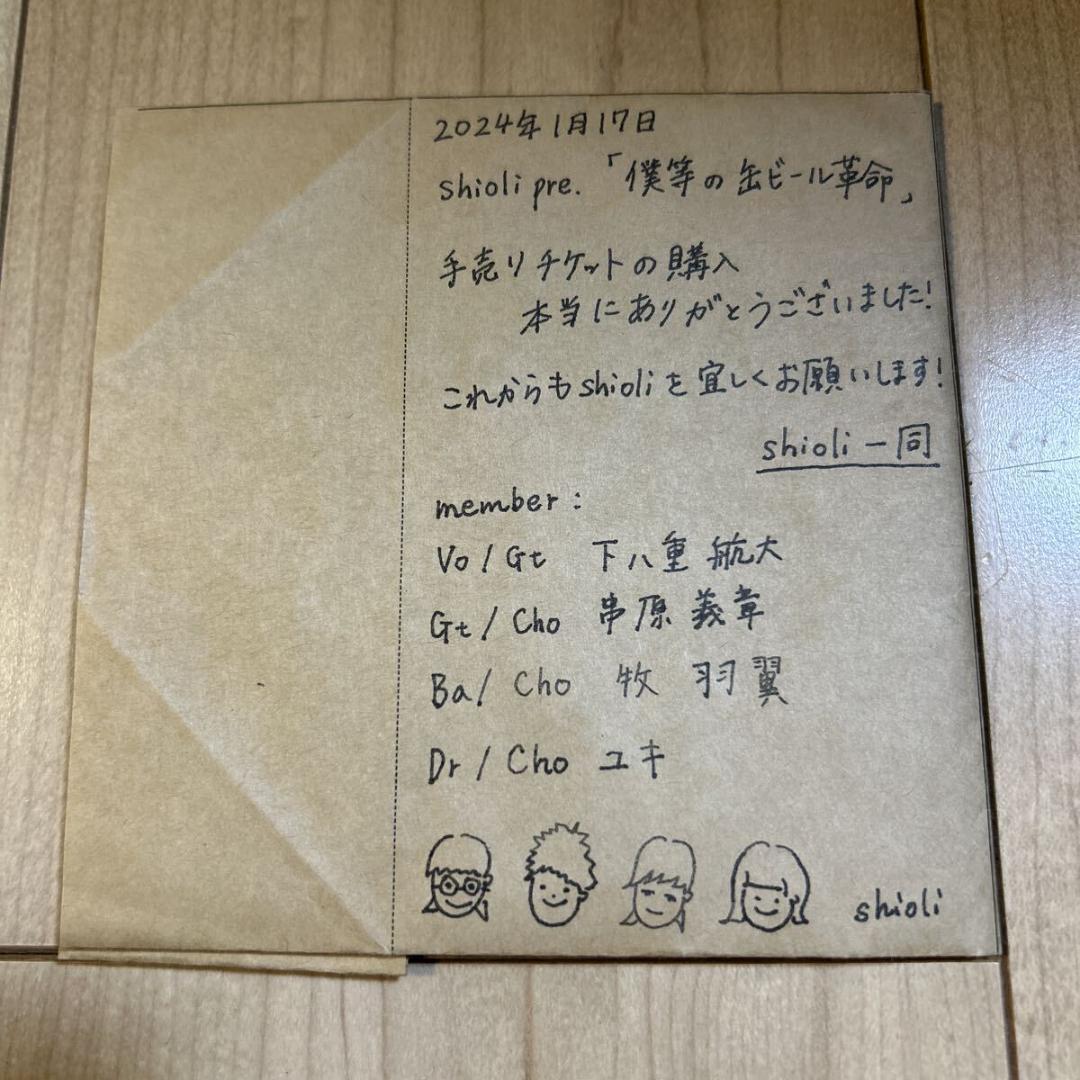 2024年1月17日
shioli pre.「僕等の缶ビール革命」
手売りチケットの購入
本当にありがとうございました!
これからもshioliを宜しくお願いします!
shioli一同
member:
Vo/Gt 下八重 航大
Gt/Cho 串原 義章
Ba/Cho 牧 羽翼
Dr/Cho ユキ
shioli